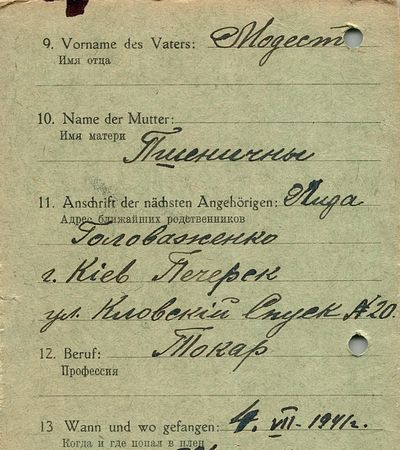 9. Vorname des Vaters: Модест
Имя отца
10. Name der Mutter:
Имя матери
Пшеничны
11. Anschrift der nächsten Angehörigen: Лида
Адрес ближайших родственников
Головаженко
г. Кіев Печерск
ул. Кловскій Спуск № 20.
12. Beruf: Токар
Профессия
13 Wann und wo gefangen: 4. VII - 1941 г.
Когда и где попал в плен